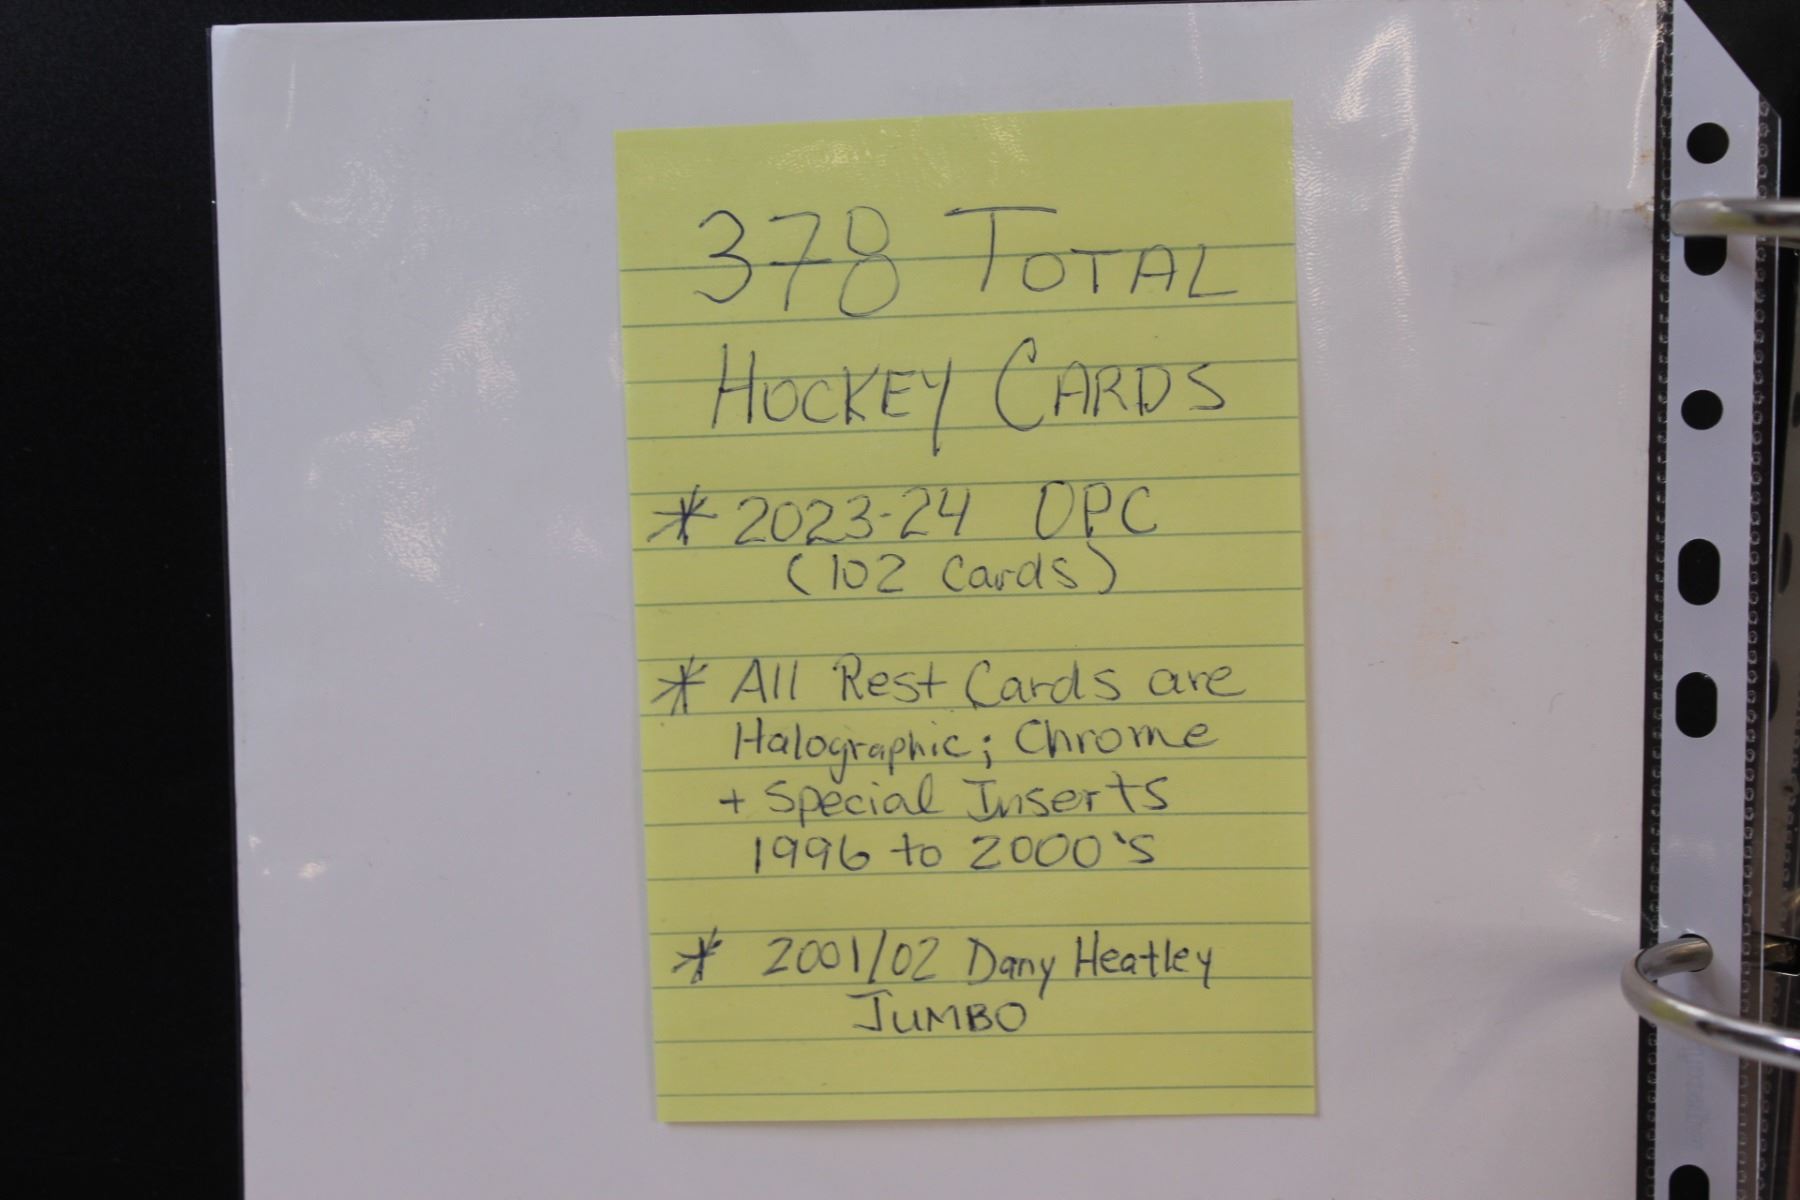 378 TOTAL
HOCKEY CARDS
* 2023-24 OPC
(102 Cards)
* All Rest Cards are
Halographic; Chrome
+ Special Inserts
1996 to 2000's
* 2001/02 Dany Heatley
JUMBO